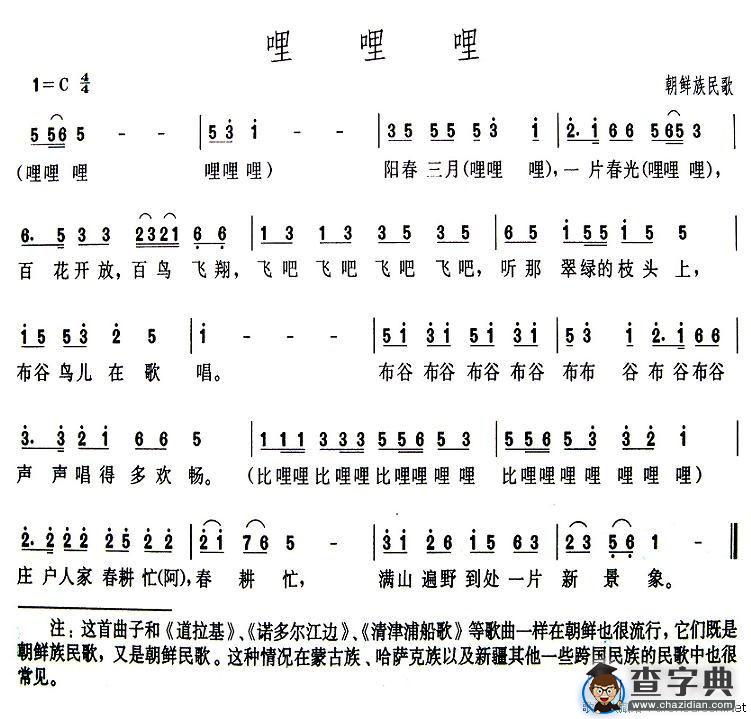 哩 哩 哩
1=C 4/4 朝鲜族民歌
5 5 6 5 - - | 5 5 3 i - - | 3 5 5 5 5 5 3 i | 2. i 6 6 5 6 5 3 |
(哩哩 哩 哩哩 哩) 阳春 三月(哩哩 哩),一 片春光(哩哩 哩),
6. 5 3 3 2 3 2 1 6 6 | 1 3 1 3 3 5 3 5 | i 5 5 i 5 5 |
百 花开放,百鸟 飞翔,飞吧 飞吧 飞吧 飞吧,听那 翠绿的枝头上,
i 5 5 3 2 5 | i - - - | 5 i 5 i 5 i 5 i | 5 3 i 5 3 5 i |
布谷 鸟儿 在 歌 唱。 布谷 布谷 布谷 布谷 布布 谷 布谷布谷
3. 3 2 i 6 6 5 | 1 1 1 3 3 3 5 5 5 6 5 | 5 5 6 5 3 3 2 i |
声 声唱得 多欢 畅。 (比哩哩 比哩哩 比哩哩哩 哩 比哩哩哩 哩 哩哩 哩)
2. 2 2 2 2 5 2 2 | 2 i 7 6 5 - | 3 i 2 5 1 6 5 3 | 2 3 5 6 1 - ‖
庄 户人家 春耕 忙(阿),春 耕 忙, 满山 遍野 到处 一片 新 景 象。
注:这首曲子和《道拉基》、《诺多尔江边》、《清津浦船歌》等歌曲一样在朝鲜也很流行,它们既是
朝鲜族民歌,又是朝鲜民歌。这种情况在蒙古族、哈萨克族以及新疆其他一些跨国民族的民歌中也很
常见。
查字典
www.chazidian.com